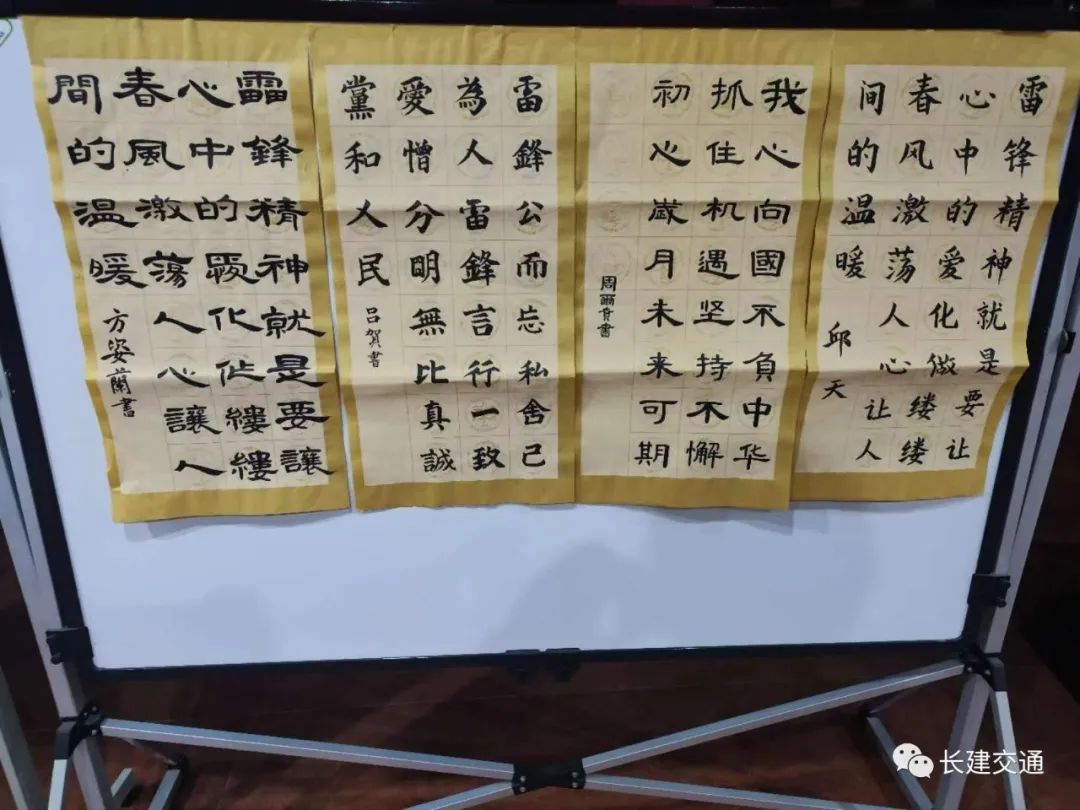 雷锋精神就是要让
心中的爱化做缕缕
春风激荡人心让人
间的温暖
邱天
我心向國不負中华
抓住机遇坚持不懈
初心歲月未来可期
周爾書
雷鋒公而忘私舍己
為人雷鋒言行一致
愛憎分明無比真誠
黨和人民
吕賀書
靁鋒精神就是要讓
心中的愛化作縷縷
春風激蕩人心讓人
間的温暖
方姿蘭書
长建交通